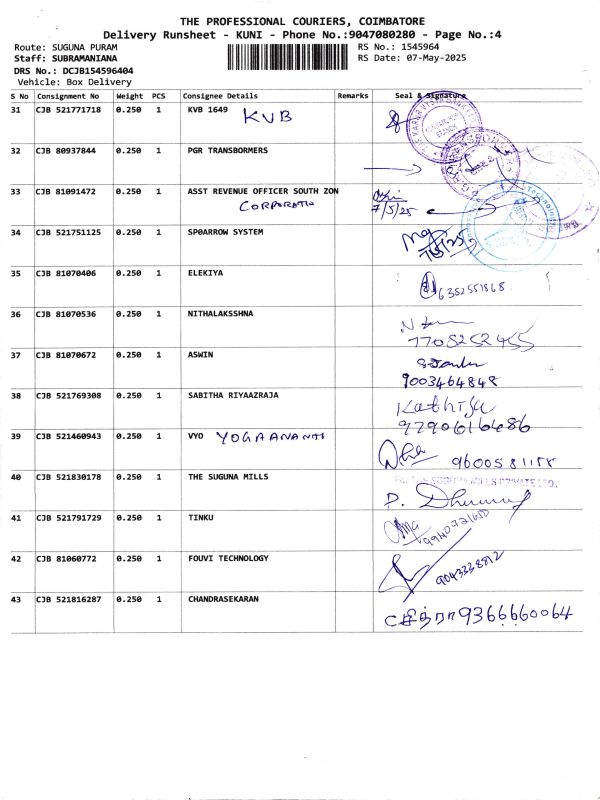 THE PROFESSIONAL COURIERS, COIMBATORE
Delivery Runsheet - KUNI - Phone No.:9047080280 - Page No.:4
Route: SUGUNA PURAM
RS No.: 1545964
Staff: SUBRAMANIANA
RS Date: 07-May-2025
DRS No.: DCJB154596404
Vehicle: Box Delivery
S No Consignment No Weight PCS Consignee Details Remarks Seal & Signature
31 CJB 521771718 0.250 1 KVB 1649 KVB
32 CJB 80937844 0.250 1 PGR TRANSBORMERS
33 CJB 81091472 0.250 1 ASST REVENUE OFFICER SOUTH ZON
CORPORATIO 7/5/25
34 CJB 521751125 0.250 1 SP0ARROW SYSTEM
35 CJB 81070406 0.250 1 ELEKIYA
6382551868
36 CJB 81070536 0.250 1 NITHALAKSSHNA
7708252455
37 CJB 81070672 0.250 1 ASWIN
9003464848
38 CJB 521769308 0.250 1 SABITHA RIYAAZRAJA Kathija
9790616486
39 CJB 521460943 0.250 1 VYO YOGAANANTH
9600581188
40 CJB 521830178 0.250 1 THE SUGUNA MILLS
For THE SUGUNA MILLS PRIVATE LTD.
41 CJB 521791729 0.250 1 TINKU
42 CJB 81060772 0.250 1 FOUVI TECHNOLOGY
9043338812
43 CJB 521816287 0.250 1 CHANDRASEKARAN
9366660064